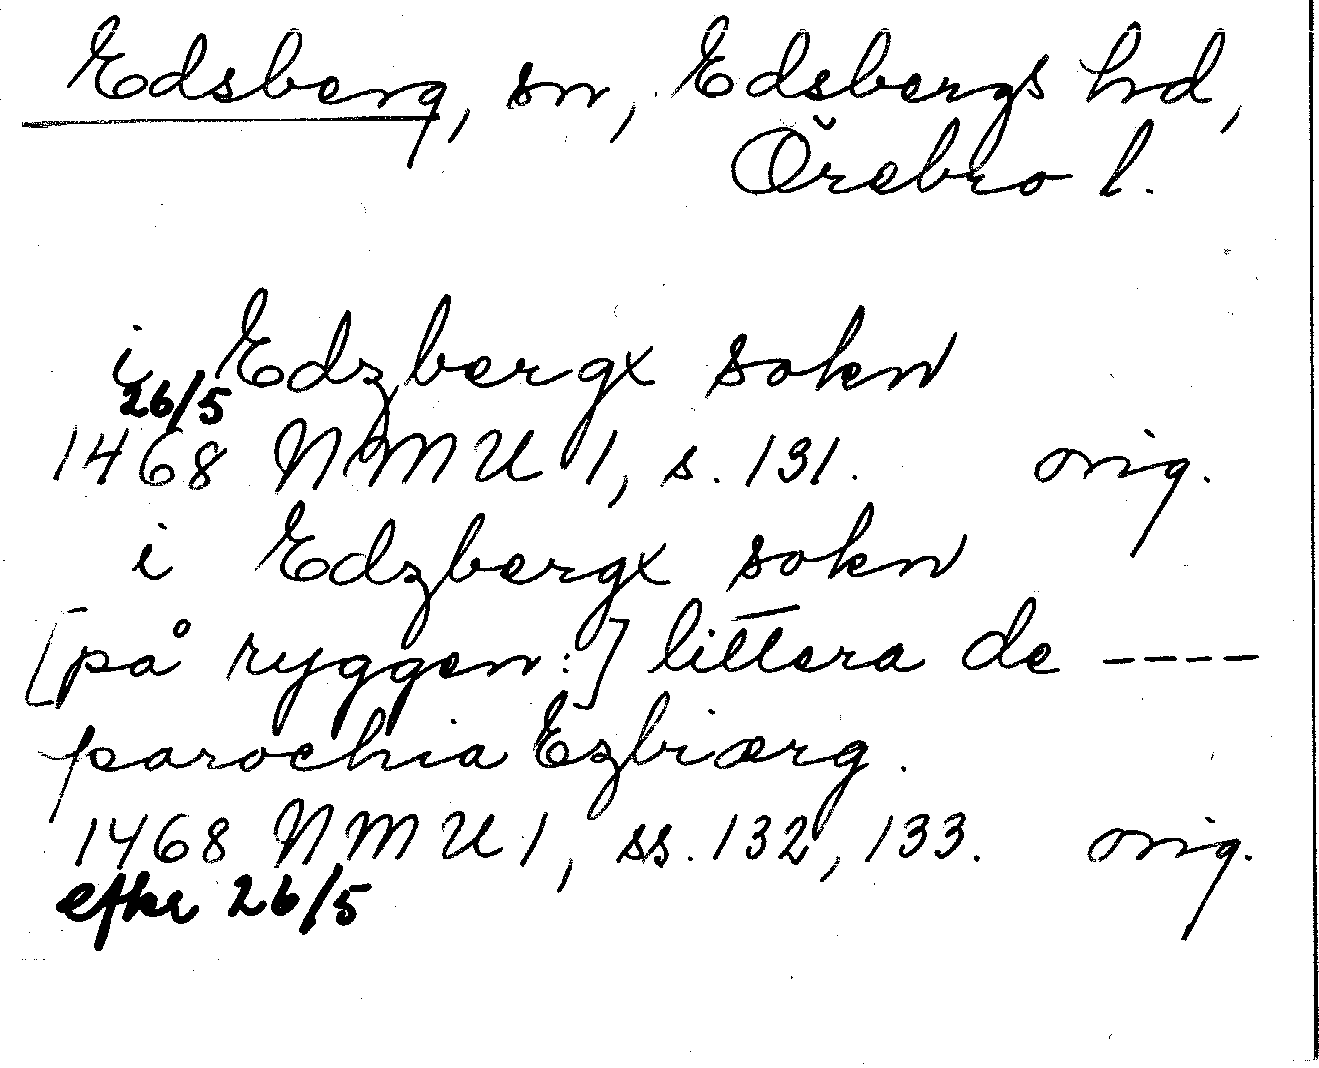 Edsberg, sn, Edsbergs hd,
Örebro l.
i Edzbergx sokn
26/5
1468 NMU 1, s. 131. orig.
i Edzbergx sokn
[på ryggen:] littera de ----
parochia Ezbiærg.
1468 NMU 1, ss. 132, 133. orig.
efter 26/5